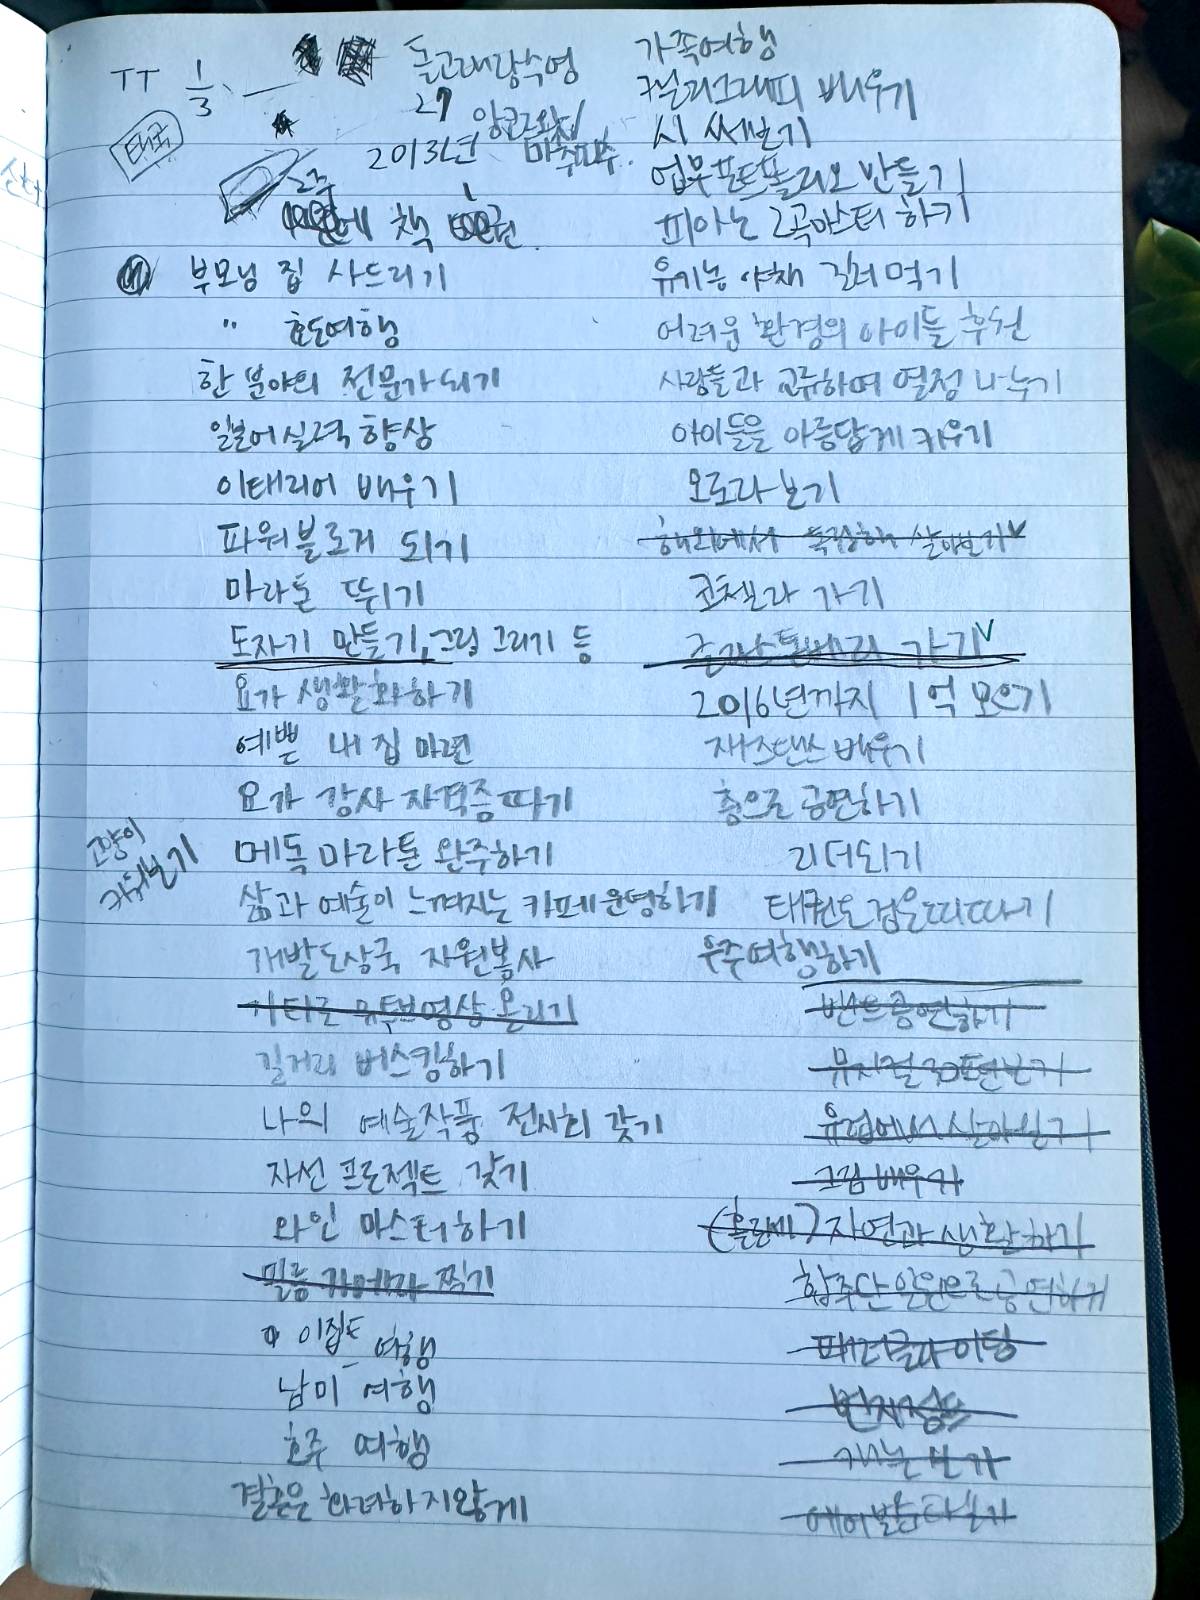 TT 1/3
태국
돌고래랑수영
27 앙코르왓
2013년 마추픽추
2주에 책 1권
부모님 집 사드리기
" 효도여행
한 분야의 전문가되기
일본어실력 향상
이태리어 배우기
파워블로거 되기
마라톤 뛰기
도자기 만들기, 그림 그리기 등
요가 생활화하기
예쁜 내 집 마련
요가 강사 자격증따기
고양이
키워보기
메독 마라톤 완주하기
삶과 예술이 느껴지는 카페운영하기
개발도상국 자원봉사
기타로 유투브영상 올리기
길거리 버스킹하기
나의 예술작품 전시회 갖기
자선 프로젝트 갖기
와인 마스터하기
필름 카메라 찍기
이집트 여행
남미 여행
호주 여행
결혼은 화려하지않게
가족여행
캘리그래피 배우기
시 써보기
업무포트폴리오 만들기
피아노 2곡마스터 하기
유기농 야채 길러 먹기
어려운 환경의 아이들 후원
사람들과 교류하여 열정 나누기
아이들을 아름답게 키우기
오로라 보기
해외에서 독립해 살아보기
코첼라 가기
글라스톤베리 가기
2016년까지 1억 모으기
재즈댄스 배우기
춤으로 공연하기
리더되기
태권도 검은띠따기
우주여행하기
밴드공연하기
뮤지컬 30편보기
유럽에서 살아보기
그림 배우기
자연과 생활하기
합주단 일원으로 공연하기
패러글라이딩
번지점프